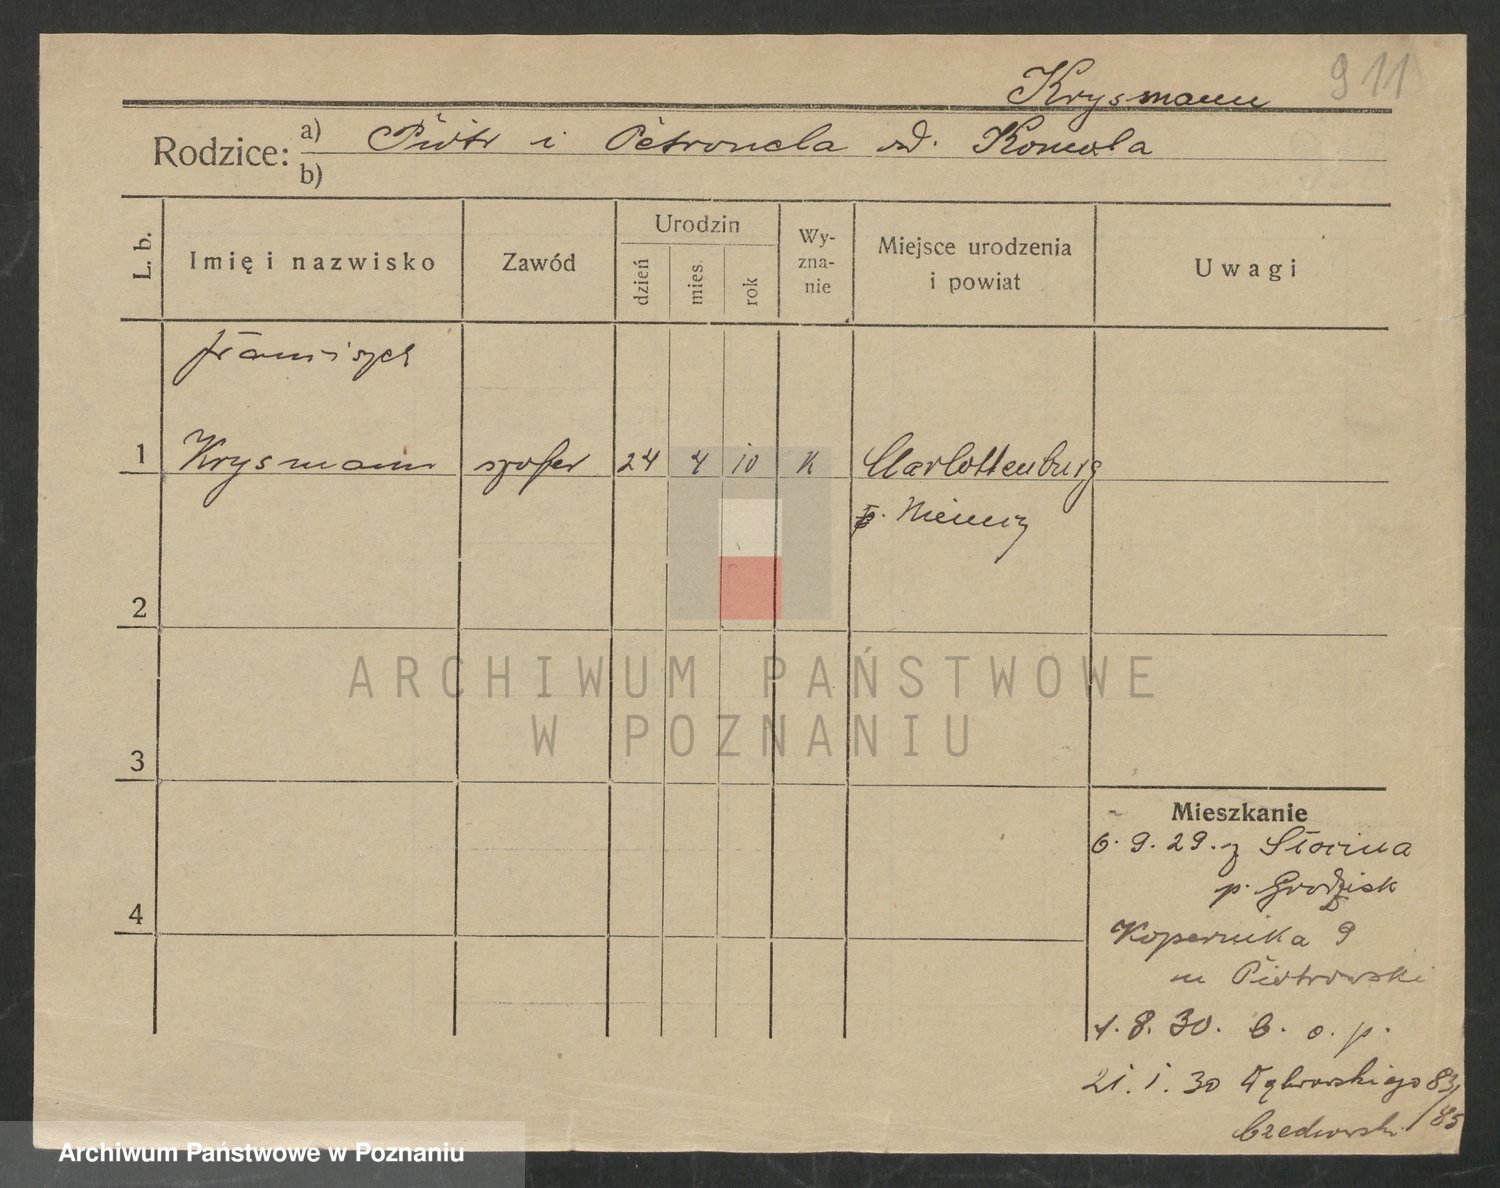 911
Krysmann
Rodzice: a) Piotr i Petronela zd. Komola
b)
L. b.
Imię i nazwisko
Zawód
Urodzin
dzień
mies.
rok
Wy-
zna-
nie
Miejsce urodzenia
i powiat
Uwagi
Franciszek
1 Krysmann szofer 24 4 10 k Charlottenburg
p. Niemcy
2
3
4
Mieszkanie
6.9.29. z Słocina
p. Grodzisk
Kopernika 9
m Piotrowski
1.8.30. b. o. p.
21.1.30 Dąbrowskiego 83/85
ARCHIWUM PAŃSTWOWE
W POZNANIU
Archiwum Państwowe w Poznaniu